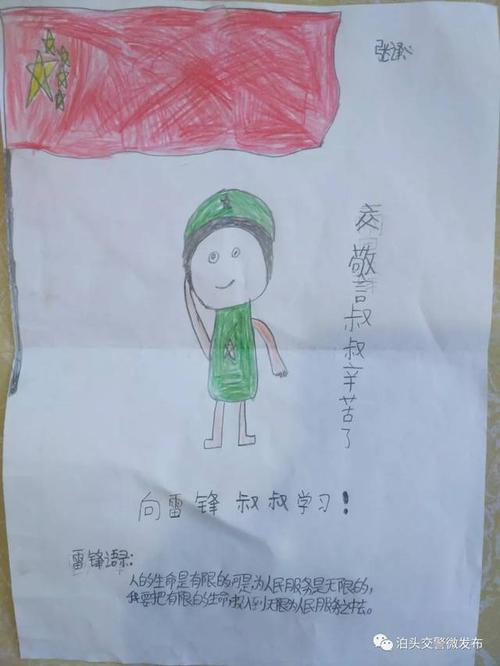 张
交警叔叔辛苦了
向雷锋叔叔学习！
雷锋语录：
人的生命是有限的可是为人民服务是无限的，
我要把有限的生命，投入到无限为人民服务之中去。
泊头交警微发布